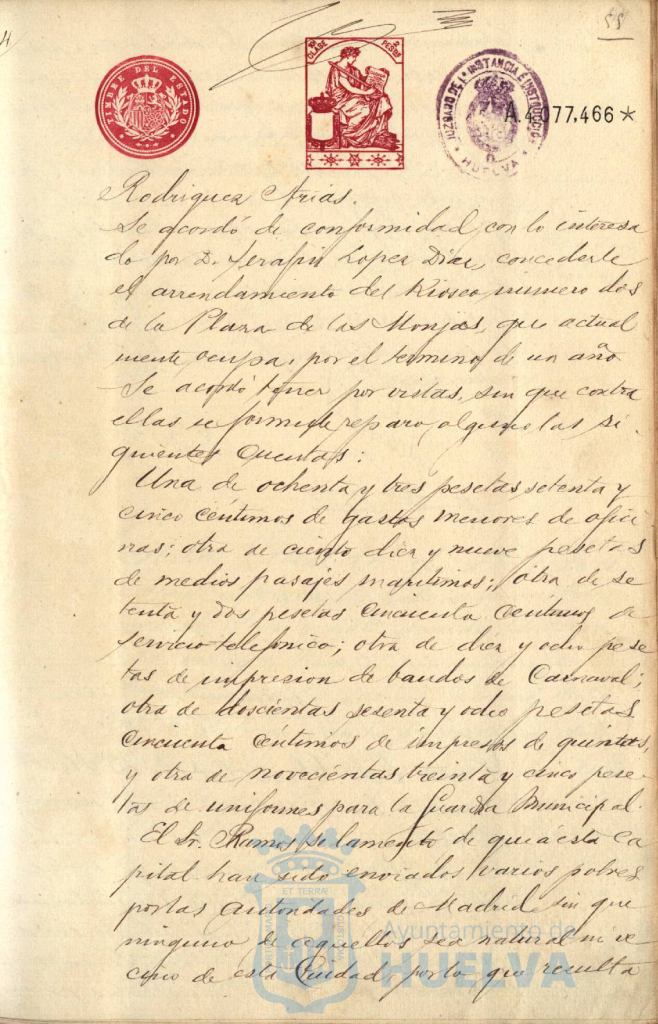 55
TIMBRE DEL ESTADO
10ª CLASE
2 PESETAS
JUZGADO DE 1ª INSTANCIA E INSTRUCCION
HUELVA
A.4.077.466 *
Rodriguez Arias.
Se acordó de conformidad con lo interesa
do por D. Serafin Lopez Diaz, concederle
el arrendamiento del Kiosco número dos
de la Plaza de las Monjas, que actual
mente ocupa, por el término de un año
Se acordó tener por vistas, sin que contra
ellas se formule reparo alguno las si-
guientes cuentas:
Una de ochenta y tres pesetas setenta y
cinco céntimos de gastos menores de ofici
nas; otra de ciento diez y nueve pesetas
de medios pasajes marítimos; otra de se
tenta y dos pesetas cincuenta céntimos de
servicio telefónico; otra de diez y ocho pese
tas de impresion de bandos de Carnaval;
otra de doscientas sesenta y ocho pesetas
cincuenta céntimos de impresos de quintas,
y otra de novecientas treinta y cinco pese-
tas de uniformes para la Guardia Municipal.
El Sr. Ramos se lamentó de que a esta Ca
pital han sido enviados varios pobres
por las autoridades de Madrid sin que
ninguno de aquellos sea natural ni ve
cino de esta Ciudad, por lo que resulta
Ayuntamiento de
HUELVA